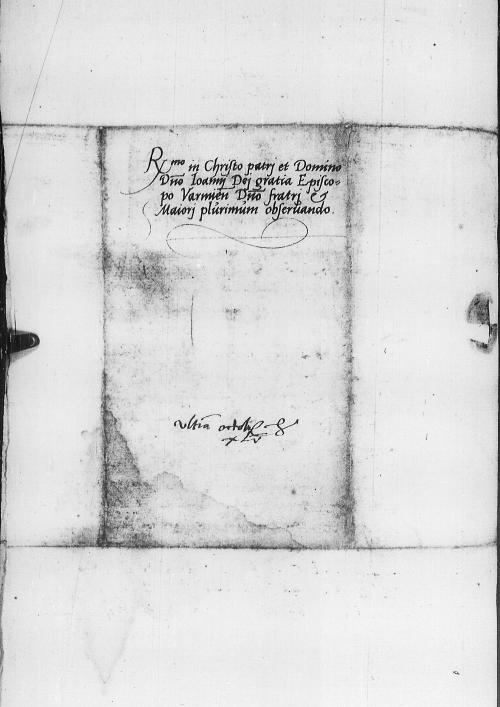 R^mo in Christo patri et Domino
Dno Ioanni Dei gratia Episco-
po Varmien Dno fratri &
Maiori plurimum obseruando.
Ultia octobr
xLv